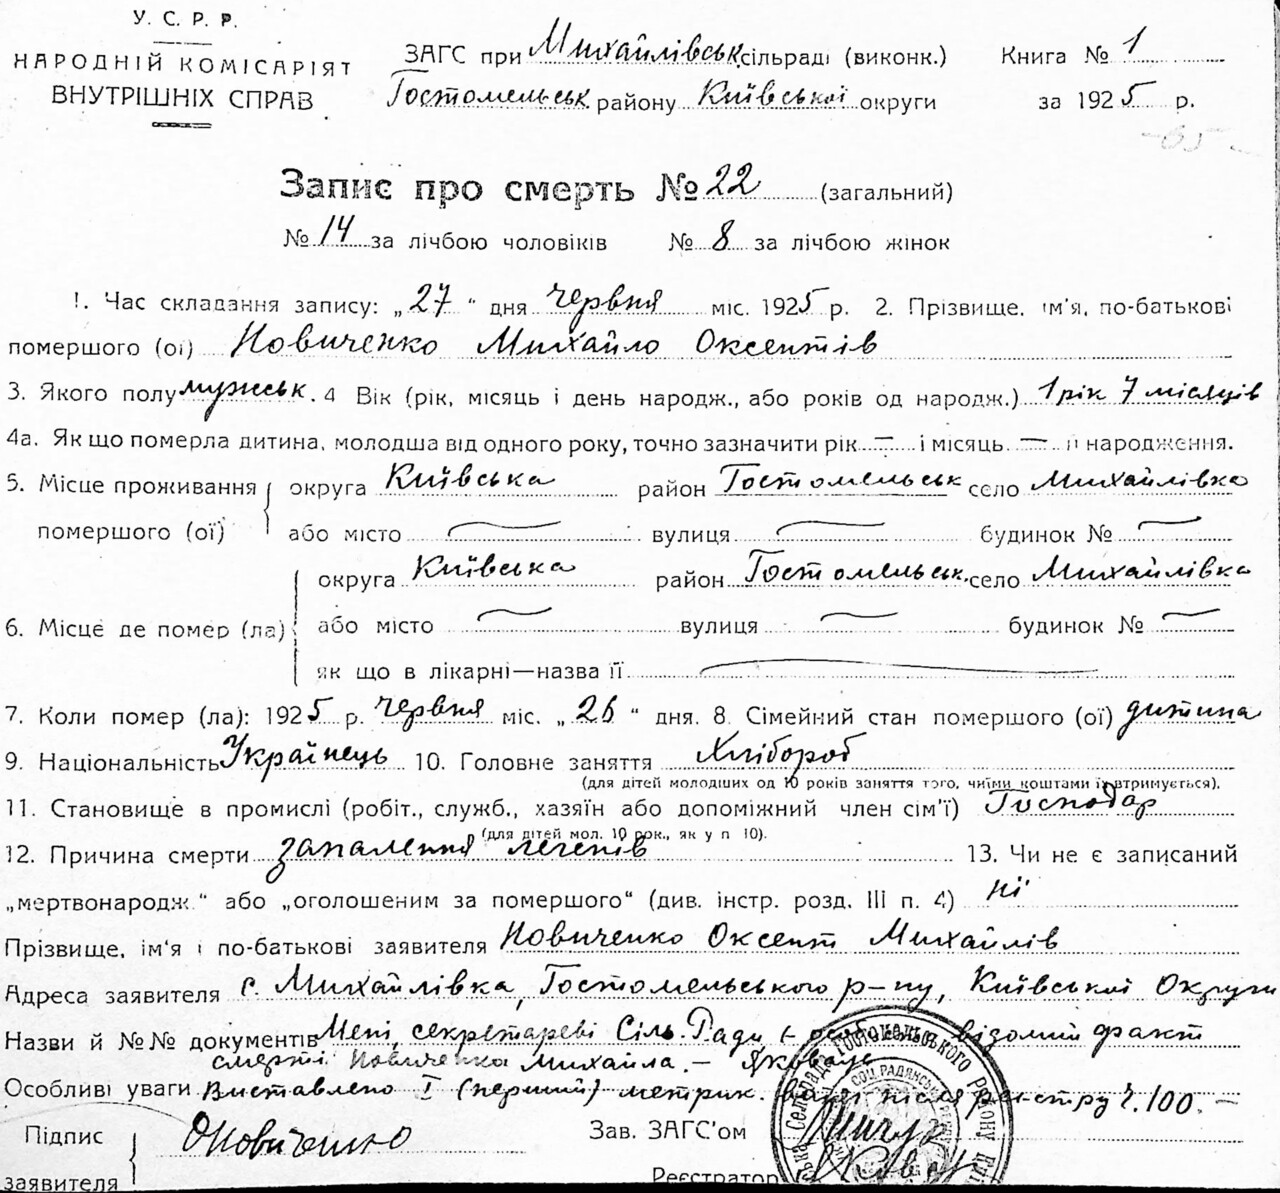 У. С. Р. Р.
НАРОДНІЙ КОМІСАРІЯТ
ВНУТРІШНІХ СПРАВ
ЗАГС при Михайлівськ. сільраді (виконк.) Книга № 1
Гостомельськ району Київської округи за 1925 р.
Запис про смерть № 22 (загальний)
№ 14 за лічбою чоловіків № 8 за лічбою жінок
1. Час складання запису: „27" дня червня міс. 1925 р. 2. Прізвище, ім'я, по-батькові
помершого (ої) Новиченко Михайло Оксентів
3. Якого полу мужськ. 4 Вік (рік, місяць і день народж., або років од народж.) 1 рік 7 місяців
4а. Як що померла дитина, молодша від одного року, точно зазначити рік — і місяць — її народження.
5. Місце проживання округа Київська район Гостомельськ село Михайлівка
помершого (ої) або місто вулиця будинок №
округа Київська район Гостомельськ. село Михайлівка
6. Місце де помер (ла) або місто вулиця будинок №
як що в лікарні—назва її
7. Коли помер (ла): 1925 р. червня міс. „26" дня. 8. Сімейний стан помершого (ої) дитина
9. Національність Українець 10. Головне заняття Хлібороб
(для дітей молодших од 10 років заняття того, чиїми коштами їх втримується).
11. Становище в промислі (робіт., служб., хазяїн або допоміжний член сім'ї) Господар
(для дітей мол. 10 рок., як у п 10).
12. Причина смерти запалення легенів 13. Чи не є записаний
„мертвонародж." або „оголошеним за помершого" (див. інстр. розд. III п. 4) ні
Прізвище, ім'я і по-батькові заявителя Новиченко Оксент Михайлів
Адреса заявителя с. Михайлівка, Гостомельського р-ну, Київської Округи
Назви й №№ документів Мені, секретареві Сіль. Ради відомий факт
смерті Новиченка Михайла. —
Особливі уваги Виставлено I (перший) метрик. реєстру ч. 100. —
Підпис
заявителя
ОНовиченко
Зав. ЗАГС'ом
Реєстратор